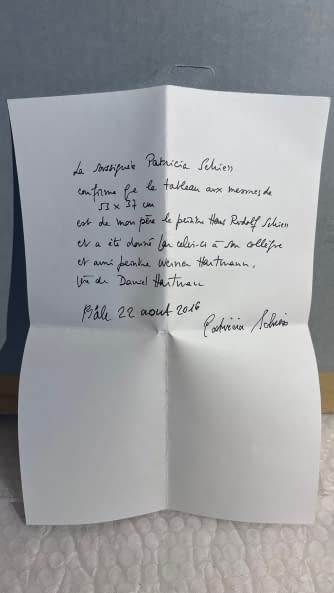 La soussignée Patricia Schiess
confirme que le tableau aux mesures de
53 x 37 cm
est de mon père le peintre Hans Rudolf Schiess
et a été donné par celui-ci à son collègue
et ami peintre Werner Hartmann,
de Daniel Hartmann
Bâle 22 août 2016
Patricia Schiess